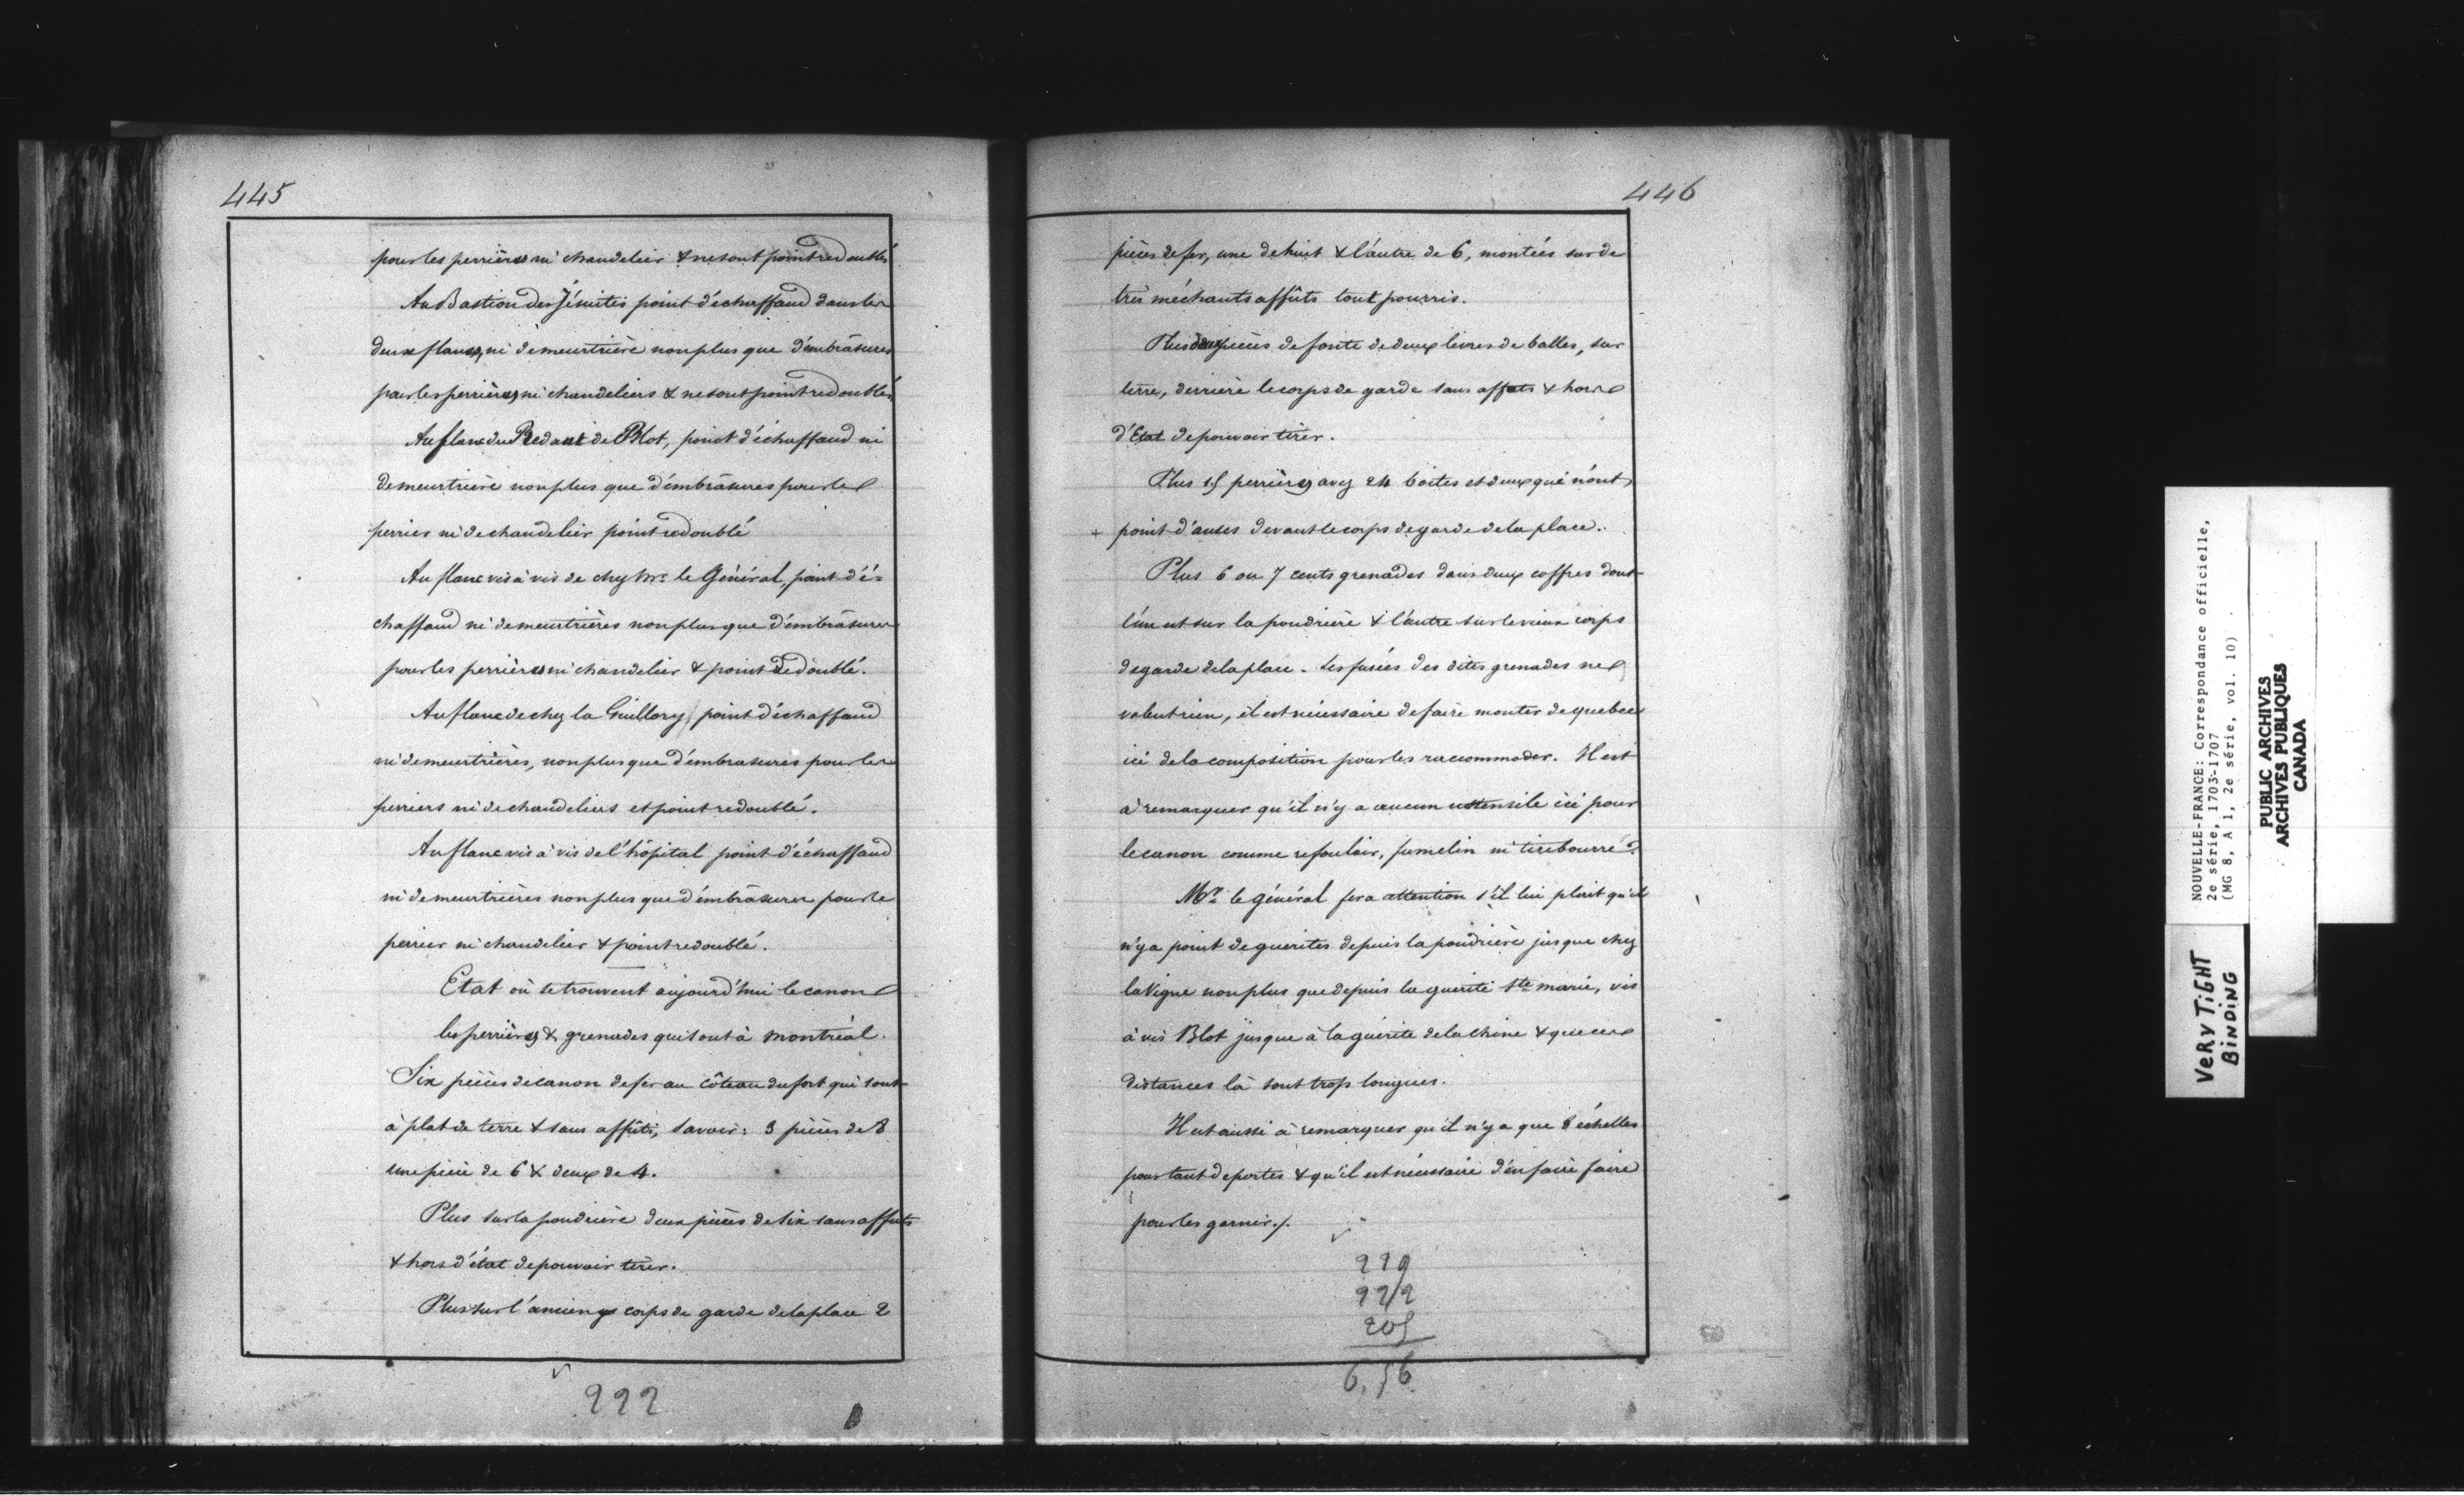 445
pour les perrières ni chandelier & ne sont point redoublés
Au Bastion des Jésuites point d'échaffaud dans les
deux flancs, ni de meurtrière non plus que d'embrâsures
pour les perrières ni chandeliers & ne sont point redoublés
Au flanc du Redant de Blot, point d'échaffaud ni
de meurtrière non plus que d'embrâsures pour les
perrier ni de chandelier point redoublé
Au flanc vis à vis de chez Mr. le Général, point d'é-
chaffaud ni de meurtrières non plus que d'embrâsures
pour les perrières ni chandelier & point dedoublé.
Au flanc de chez la Guillory point d'échaffaud
ni de meurtrières, non plus que d'embrasures pour les
perriers ni de chandeliers et point redoublé.
Au flanc vis à vis de l'hôpital point d'échaffaud
ni de meurtrières non plus que d'embrâsures pour le
perrier ni chandelier & point redoublé.
Etat où se trouvent aujourd'hui le canon
les perrières & grenades qui sont à Montréal.
Six pièces de canon de fer au côteau du fort qui sont
à plat de terre & sans affûts, savoir: 3 pièces de 8
une pièce de 6 & deux de 4.
Plus sur la poudrière deux pièces de six sans affuts
& hors d'état de pouvoir tirer.
Plus sur l'ancien corps de garde de la place 2
222
446
pièces de fer, une de huit & l'autre de 6, montées sur de
très méchants affûts tout pourris.
Plus deux pièces de fonte de deux livres de balles, sur
terre, derrière le corps de garde sans affuts & hors
d'Etat de pouvoir tirer.
Plus 15 perrières avec 24 boites et deux qui n'ont
+ point d'anses devant le corps de garde de la place.
Plus 6 ou 7 cents grenades dans deux coffres dont
l'un est sur la poudrière & l'autre sur le vieux corps
de garde de la place. Les fusées des dites grenades ne
valent rien, il est nécessaire de faire monter de quebec
ici de la composition pour les raccommoder. Il est
à remarquer qu'il n'y a aucun ustensile ici pour
le canon comme refouloir, fumelin ni tirebourre.
Mr. le général fera attention s'il lui plait qu'il
n'y a point de guerites depuis la poudrière jusque chez
la Vigne non plus que depuis la guerite Ste marie, vis
à vis Blot jusque à la guérite de la Chine & que ces
distances là sont trop longues.
Il est aussi à remarquer qu'il n'y a que 8 échelles
pour tant de portes & qu'il est nécessaire d'en faire faire
pour les garnir./.
205
6,56
NOUVELLE-FRANCE: Correspondance officielle,
2e série, 1703-1707
(MG 8, A 1, 2e série, vol. 10)
VERY TIGHT
BINDING
PUBLIC ARCHIVES
ARCHIVES PUBLIQUES
CANADA